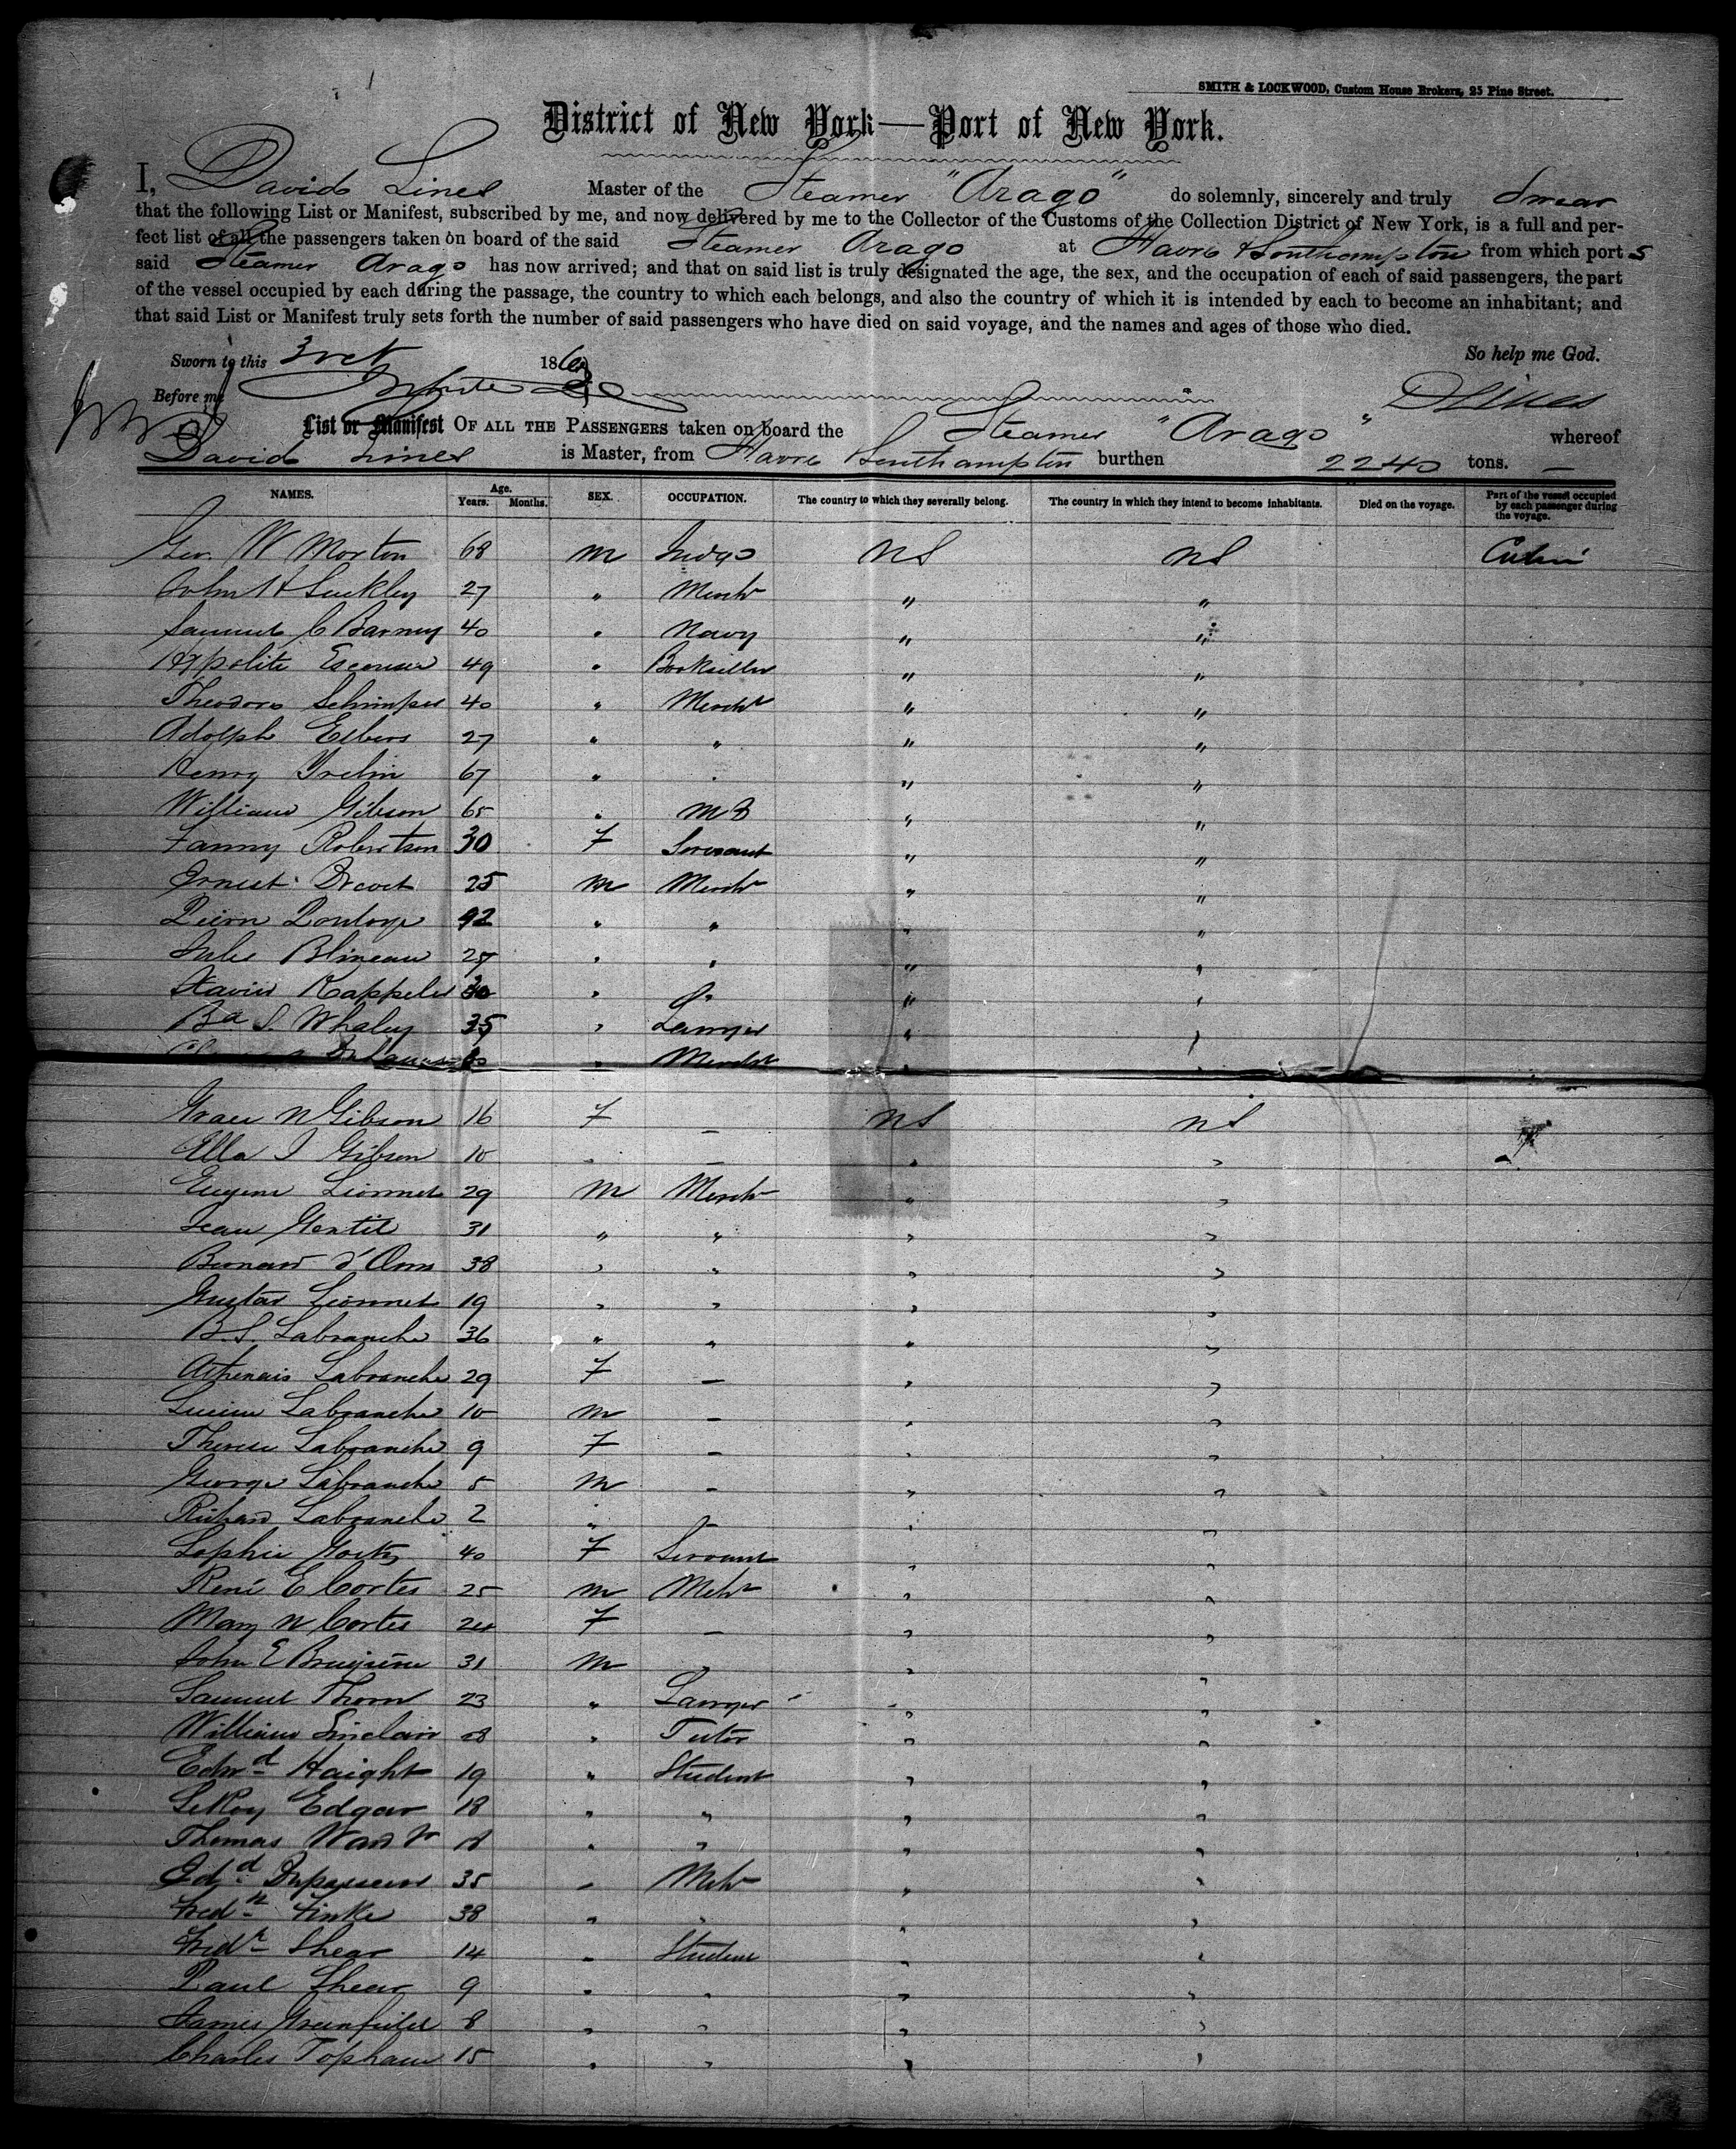 SMITH & LOCKWOOD, Custom House Brokers, 25 Pine Street.
District of New York—Port of New York.
I, David Lines Master of the Steamer "Arago" do solemnly, sincerely and truly Swear
that the following List or Manifest, subscribed by me, and now delivered by me to the Collector of the Customs of the Collection District of New York, is a full and per-
fect list of all the passengers taken on board of the said Steamer Arago at Havre & Southampton from which ports
said Steamer Arago has now arrived; and that on said list is truly designated the age, the sex, and the occupation of each of said passengers, the part
of the vessel occupied by each during the passage, the country to which each belongs, and also the country of which it is intended by each to become an inhabitant; and
that said List or Manifest truly sets forth the number of said passengers who have died on said voyage, and the names and ages of those who died.
Sworn to this 186 So help me God.
Before me D Lines
List or Manifest OF ALL THE PASSENGERS taken on board the Steamer "Arago" whereof
David Lines is Master, from Havre Southampton burthen 2240 tons. —
NAMES. Age. Years. Months. SEX. OCCUPATION. The country to which they severally belong. The country in which they intend to become inhabitants. Died on the voyage. Part of the vessel occupied by each passenger during the voyage.
Geo. W Morton 68 M Judge US US Cabin
John H Suckley 27 " Mercht " "
Samuel C Barney 40 " Navy " "
Hyppolite 49 " Bookseller " "
Theodore 40 " Mercht " "
Adolph Elbers 27 " " " "
Henry 67 " " " "
William Gibson 65 " MD " "
Fanny Robertson 30 F Servant " "
Ernest 25 M Mercht " "
92 " " " "
Jules Blineau 27 " " " "
Xavier Kappeler 30 " Do " "
S. Whaley 35 " Lawyer " "
" Mercht " "
Grace N Gibson 16 F — US US
Ella J Gibson 10 " — " "
Eugene Lionnet 29 M Mercht " "
Jean Gentil 31 " " " "
Bernard d'Orm 38 " " " "
Gustav Lionnet 19 " " " "
B.S. Labranche 36 " " " "
Athenais Labranche 29 F — " "
Lucien Labranche 10 M — " "
Therese Labranche 9 F — " "
George Labranche 5 M — " "
Richard Labranche 2 " — " "
Sophie 40 F Servant " "
René E Cortes 25 M Mcht " "
Mary N Cortes 24 F — " "
John E Bruguiere 31 M " "
Samuel Thorn 23 " Lawyer " "
William Sinclair 28 " Tutor " "
Edwd Haight 19 " Student " "
LeRoy Edgar 18 " " " "
Thomas Ward Jr 18 " " " "
35 " Mcht " "
Fredk Finke 38 " " " "
Fredk Shear 14 " Student " "
Paul Shear 9 " " " "
James Greenfield 8 " " " "
Charles Topham 15 " " " "